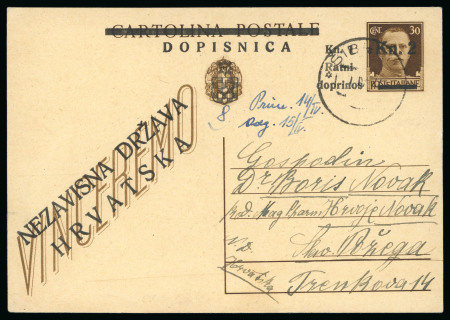 CARTOLINA POSTALE
DOPISNICA
30
Kn. Kn. 2
Ratni
doprinos
POSTE ITALIANE
Prim. 14/IV.
odg. 15/IV.
8
VINCEREMO
NEZAVISNA DRŽAVA
HRVATSKA
Gospodin
Dr Boris Novak
Mag Pharm Hrvoje Novak
Slav. Požega
Hrvatska
Trenkova 14